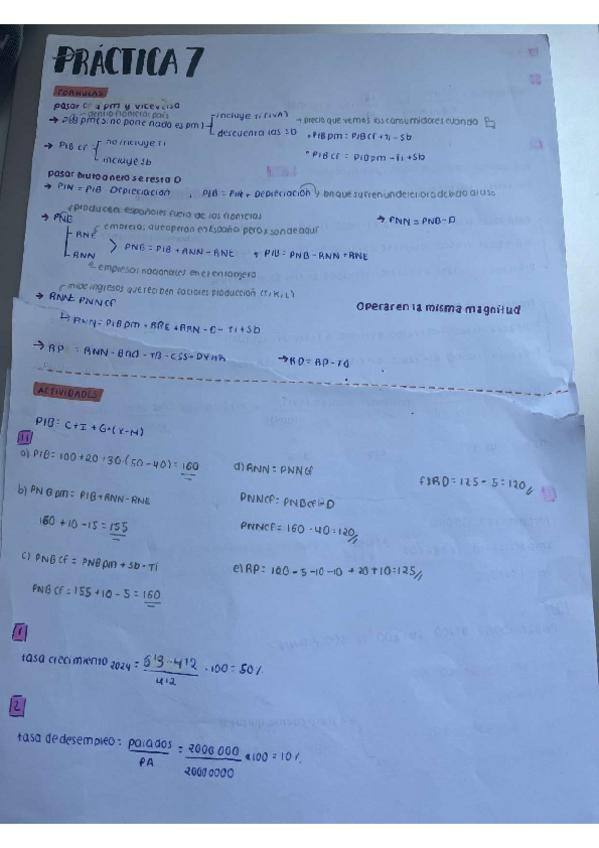 PRÁCTICA 7
FORMULAS
pasar cf a pm y viceversa
dentro fronteras país
→ PIB pm (si no pone nada es pm)
incluye Ti (IVA) → precio que vemos los consumidores cuando
descuenta las Sb
• PIBpm = PIBcf + Ti - Sb
→ PIB cf
no incluye Ti
incluye Sb
• PIBcf = PIBpm - Ti + Sb
pasar bruto a neto se resta D
→ PIN = PIB - Depreciación , PIB = PIN + Depreciación
producen españoles fuera de las fronteras
→ PNB
→ PNN = PNB - D
RNE
empresas que operan en España pero no son de aquí
PNB = PIB + RNN - RNE , PIB = PNB - RNN + RNE
RNN
empresas nacionales en el extranjero
mide ingresos que reciben factores producción (T, K, L)
Operar en la misma magnitud
→ RN = PNNcf
→ RD = RP - Td
ACTIVIDADES
PIB = C + I + G + (X - M)
11
a) PIB = 100 + 20 + 30 + (50 - 40) = 160
d) RNN = PNNcf
f) RD = 125 - 5 = 120 //
b) PNBpm = PIB + RNN - RNE
PNNcf = PNBcf - D
160 + 10 - 15 = 155
PNNcf = 160 - 40 = 120 //
c) PNBcf = PNBpm + Sb - Ti
e) RP = 120 - 5 - 10 - 10 + 20 + 10 = 125 //
PNBcf = 155 + 10 - 5 = 160
1
tasa crecimiento 2024 = 6'3 - 4'2 / 4'2 · 100 = 50%
2
tasa de desempleo = parados / PA = 2000 000 / 20000000 · 100 = 10%